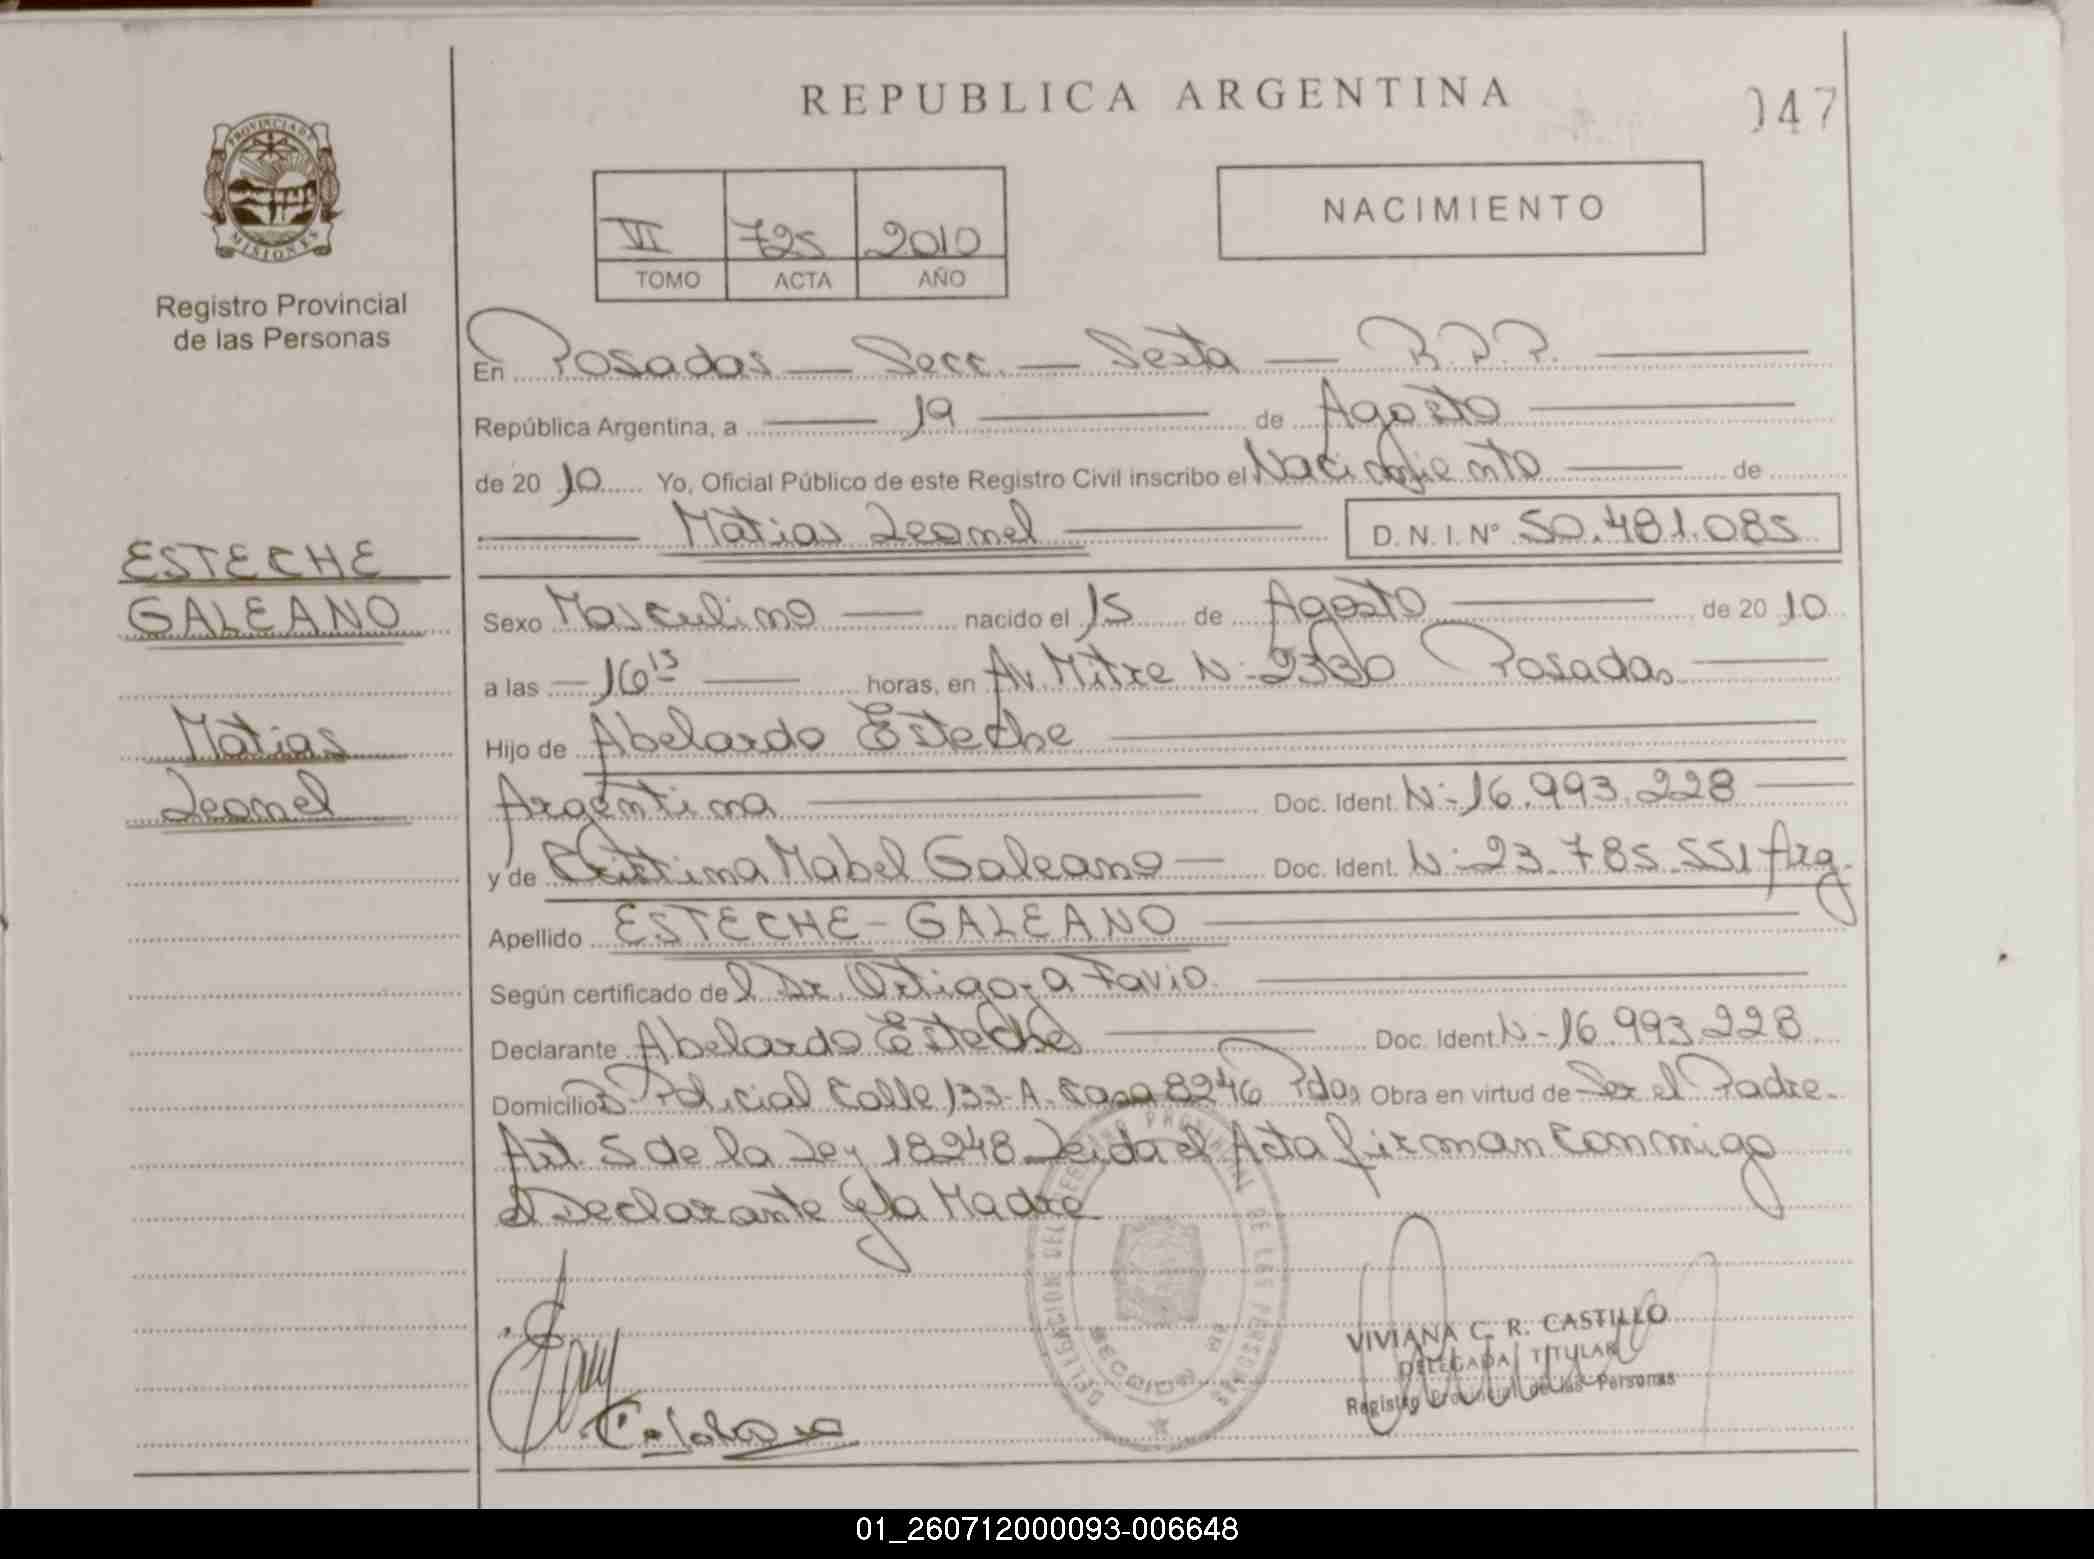 REPUBLICA ARGENTINA
047
PROVINCIA DE
MISIONES
Registro Provincial
de las Personas
VI 725 2010
TOMO ACTA AÑO
NACIMIENTO
En Posadas — Secc. — Sexta — R.P.P.
República Argentina, a 19 de Agosto
de 20 10 Yo, Oficial Público de este Registro Civil inscribo el Nacimiento de
Matias Leonel D.N.I.Nº 50.481.085
ESTECHE
GALEANO
Matias
Leonel
Sexo Masculino nacido el 15 de Agosto de 20 10
a las 16 15 horas, en Av. Mitre Nº 2330 Posadas
Hijo de Abelardo Esteche
Argentina Doc. Ident. Nº 16.993.228
y de Cristina Mabel Galeano Doc. Ident. Nº 23.785.551 Arg.
Apellido ESTECHE-GALEANO
Según certificado del Dr. Ortigoza Favio
Declarante Abelardo Esteche Doc. Ident Nº 16.993.228
Domicilio Bº Policial Calle 133-A. Casa 8246 Pdas Obra en virtud de Ser el Padre.
Art. 5 de la Ley 18248 Leida el Acta firman conmigo
el Declarante y la Madre
DELEGACION DEL REGISTRO PROVINCIAL DE LAS PERSONAS
SECCION 6ª
VIVIANA C. R. CASTILLO
DELEGADA TITULAR
Registro Provincial de las Personas
01_260712000093-006648